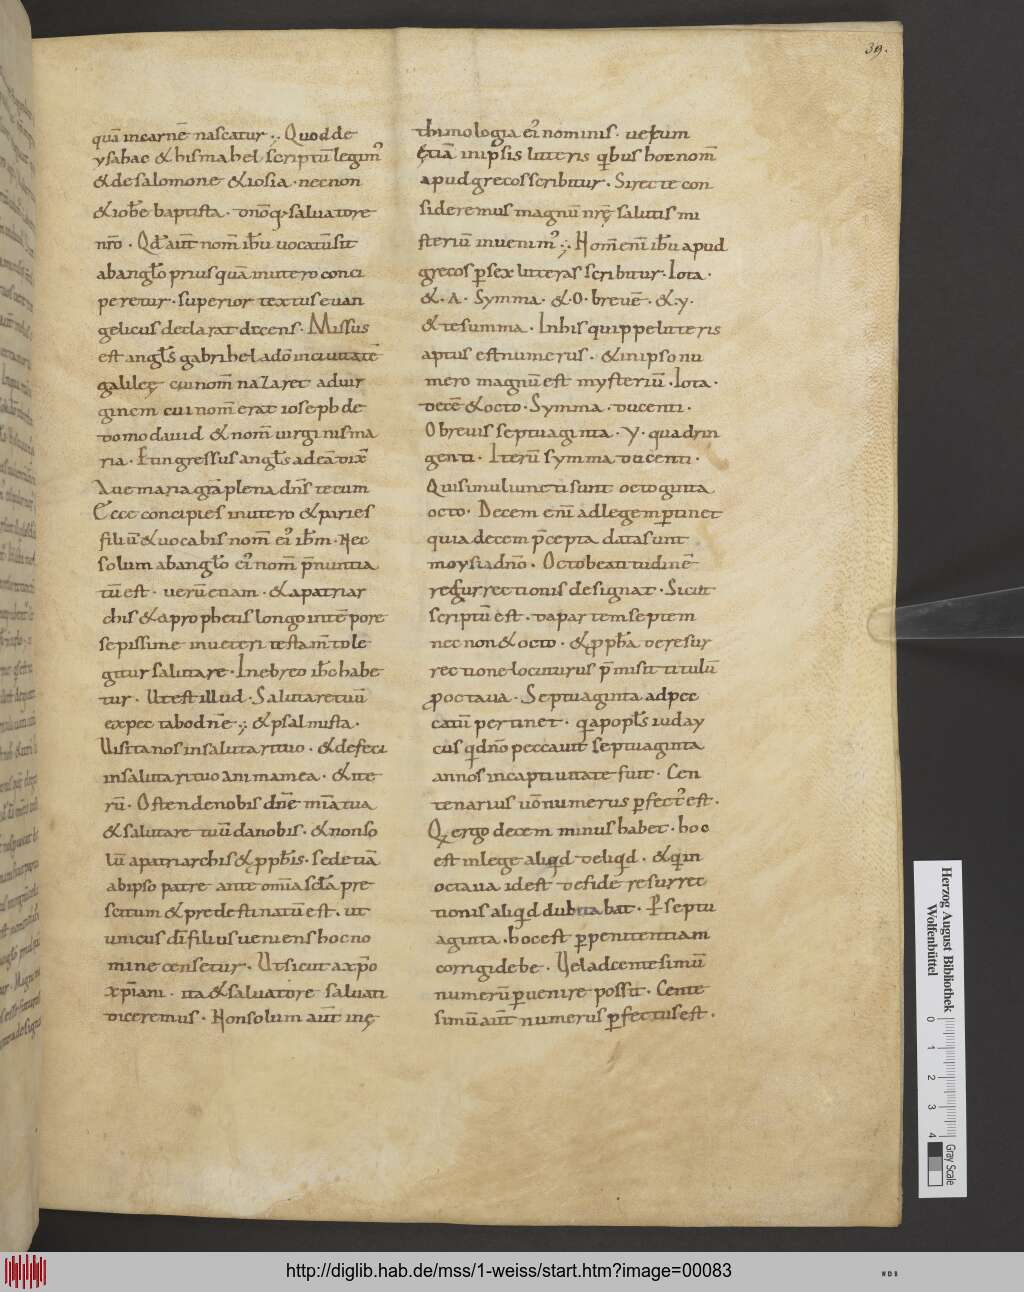 39.
quā incarnē nascatur ·, Quod de
ysahac & hismahel scriptū legim᾽
& de salomone & iosia · necnon
& ioh̄e baptista · d nōq; saluatore
nr̄o · Qd̄ aūt nom̄ ih̄u uocatū sit
ab angło prius quā in utero conci
peretur · superior textus euan
gelicus declarat dicens · Missus
est angłs gabrihel a dō in ciuitatē
galileę cui nom̄ nazaret ad uir
ginem cui nom̄ erat ioseph de
domo dauid & nom̄ uirginis ma
ria · Et ingressus angłs ad eā dix̄
Aue maria grā plena dn̄s tecum
Ecce concipies in utero & paries
filiū & uocabis nom̄ ei᾽ ih̄m · Nec
solum ab angło ei᾽ nom̄ p̄nuntia
tū est · uerū etiam · & a patriar
chis & a prophetis longo intē pore
sepissime in ueteri testam̄to le
gitur salutare · In ebreo ih̄c habe
tur · Ut est illud · Salutare tuū
expectabo dn̄e ·, & psalmista ·
Uisita nos in salutari tuo · & defeci
in salutari tuo anima mea · & ite
rū · Ostende nobis dn̄e mīa tua
& salutare tuū da nobis · & non so
lū a patriarchis & ꝓph̄is · sed etiā
ab ipso patre ante om̄ia scła pre
scitum & predestinatū est · ut
unicus dī filius ueniens hoc no
mine censetur · Ut sicut a xp̄o
xp̄iani · ita & saluatore saluati
diceremus · Non solum aūt in ę
thimologia ei᾽ nominis · uerum
ętiā in ip̄sis litteris qͥbus hoc nom̄
apud grecos scribitur · Si recte con
sideremus magnū nr̄ę salutis mi
steriū inuenim᾽ ·, Nom̄ enī ih̄u apud
grecos ꝑ sex litteras scribitur · Iota ·
& · A · Symma · & · O · breuē · & · y ·
& te summa · In his quippe litteris
aptus est numerus · & in ipso nu
mero magnū est mysteriū · Iota ·
decē & octo · Symma · ducenti ·
O breuis septuaginta · Y · quadrin
genti · Iterū symma ducenti ·
Qui simul iuncti sunt octoginta
octo · Decem enī ad legem ꝑtinet
quia decem p̄cepta data sunt
moysi a dn̄o · Octo beatitudinē
resurrectionis designat · Sicut
scriptū est · da partem septem
necnon & octo · & ꝓph̄a de resur
rectione locuturus p̄misit titulū
ꝓ octaua · Septuaginta ad pec
catū pertinet · q apopłs iuday
cus qd̄ dn̄o peccauit septuaginta
annos in captiuitate fuit · Cen
tenarius uō numerus ꝑfect᾽ est ·
Qͥ ergo decem minus habet · hoc
est in lege aliqͥd deliqͥd · & qͥ in
octaua id est de fide resurrec
tionis aliqͥd dubitabat · ꝑ septu
aginta · hoc est ꝑ penitentiam
corrigi debe · Uel ad centesimū
numerū ꝑuenire possit · Cente
simū aūt numerus ꝑfectus est ·
Herzog August Bibliothek
Wolfenbüttel
0 1 2 3 4
Gray Scale
http://diglib.hab.de/mss/1-weiss/start.htm?image=00083